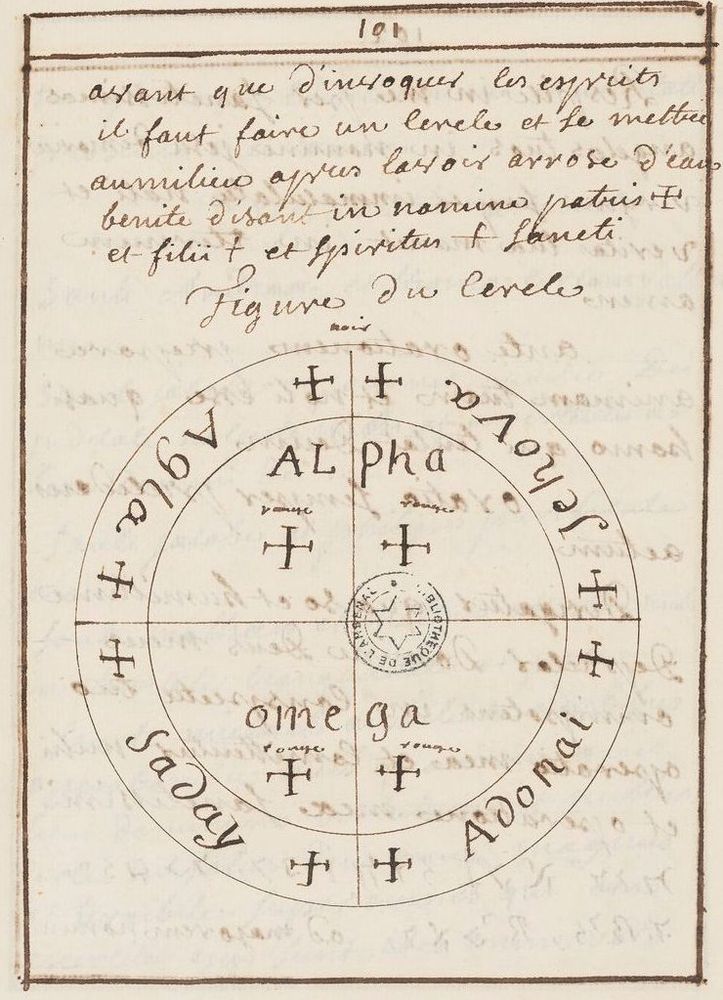 101
avant que d'invoquer les esprits
il faut faire un Cercle et se mettre
au milieu apres lavoir arrosé d'eau
benite disant in nomine patris ✝
et filii ✝ et Spiritus ✝ Sancti
Figure du Cercle
noir
✝ ✝
Agla Jehova
ALpha
rouge rouge
✝ ✝
✝ ✝
BIBLIOTHEQUE DE L'ARSENAL
✝ ✝
omega
rouge rouge
✝ ✝
Saday Adonai
✝ ✝